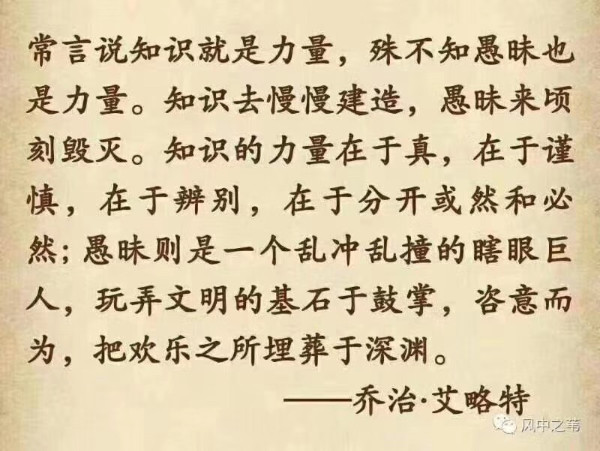 常言说知识就是力量，殊不知愚昧也
是力量。知识去慢慢建造，愚昧来顷
刻毁灭。知识的力量在于真，在于谨
慎，在于辨别，在于分开或然和必
然；愚昧则是一个乱冲乱撞的瞎眼巨
人，玩弄文明的基石于鼓掌，咨意而
为，把欢乐之所埋葬于深渊。
——乔治·艾略特
风中之苇